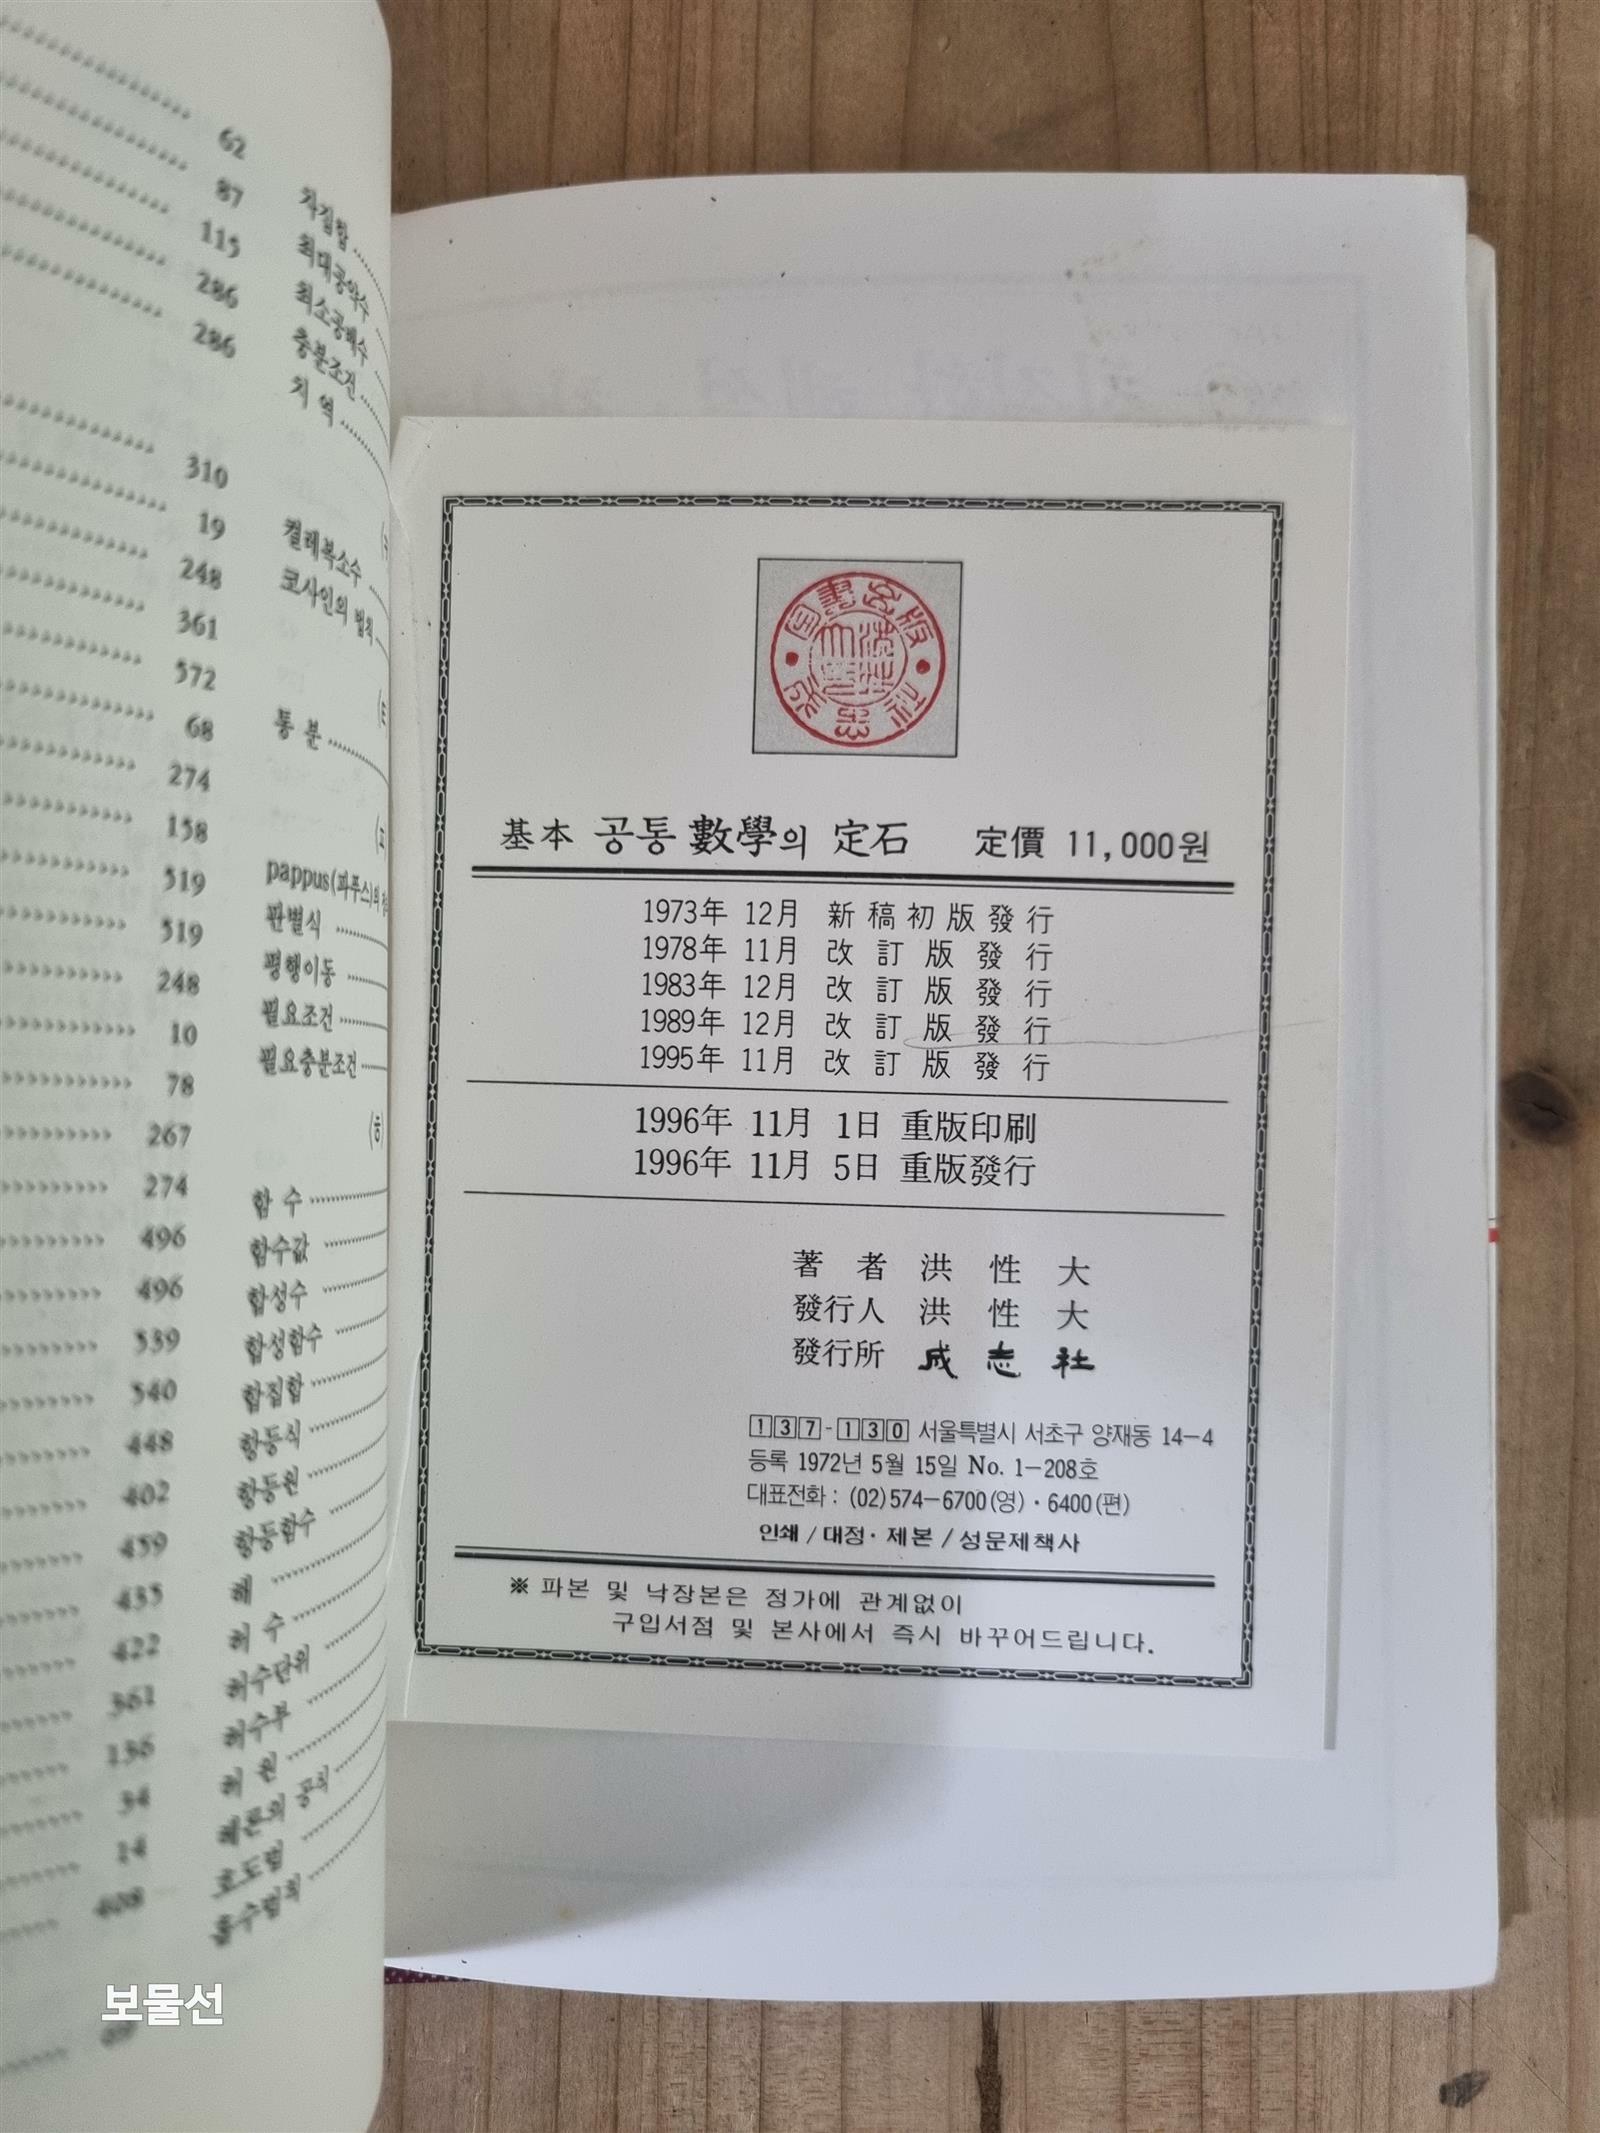 62
87
115
286
286
310
19
248
361
572
68
274
158
519
519
248
10
78
267
274
496
496
539
540
448
402
459
435
422
361
136
34
14
408
차집합
최대공약수
최소공배수
충분조건
치 역
켤레복소수
코사인의 법칙
통 분
pappus(파푸스)의
판별식
평행이동
필요조건
필요충분조건
함 수
함수값
합성수
합성함수
합집합
항등식
항등원
항등함수
해
허 수
허수단위
허수부
허 원
헤론의 공식
호도법
흡수법칙
基本 공통 數學의 定石 定價 11,000원
1973年 12月 新稿初版發行
1978年 11月 改訂版發行
1983年 12月 改訂版發行
1989年 12月 改訂版發行
1995年 11月 改訂版發行
1996年 11月 1日 重版印刷
1996年 11月 5日 重版發行
著者 洪性大
發行人 洪性大
發行所 成志社
137-130 서울특별시 서초구 양재동 14-4
등록 1972년 5월 15일 No. 1-208호
대표전화 : (02)574-6700(영)·6400(편)
인쇄 / 대정·제본 / 성문제책사
※ 파본 및 낙장본은 정가에 관계없이
구입서점 및 본사에서 즉시 바꾸어드립니다.
보물선